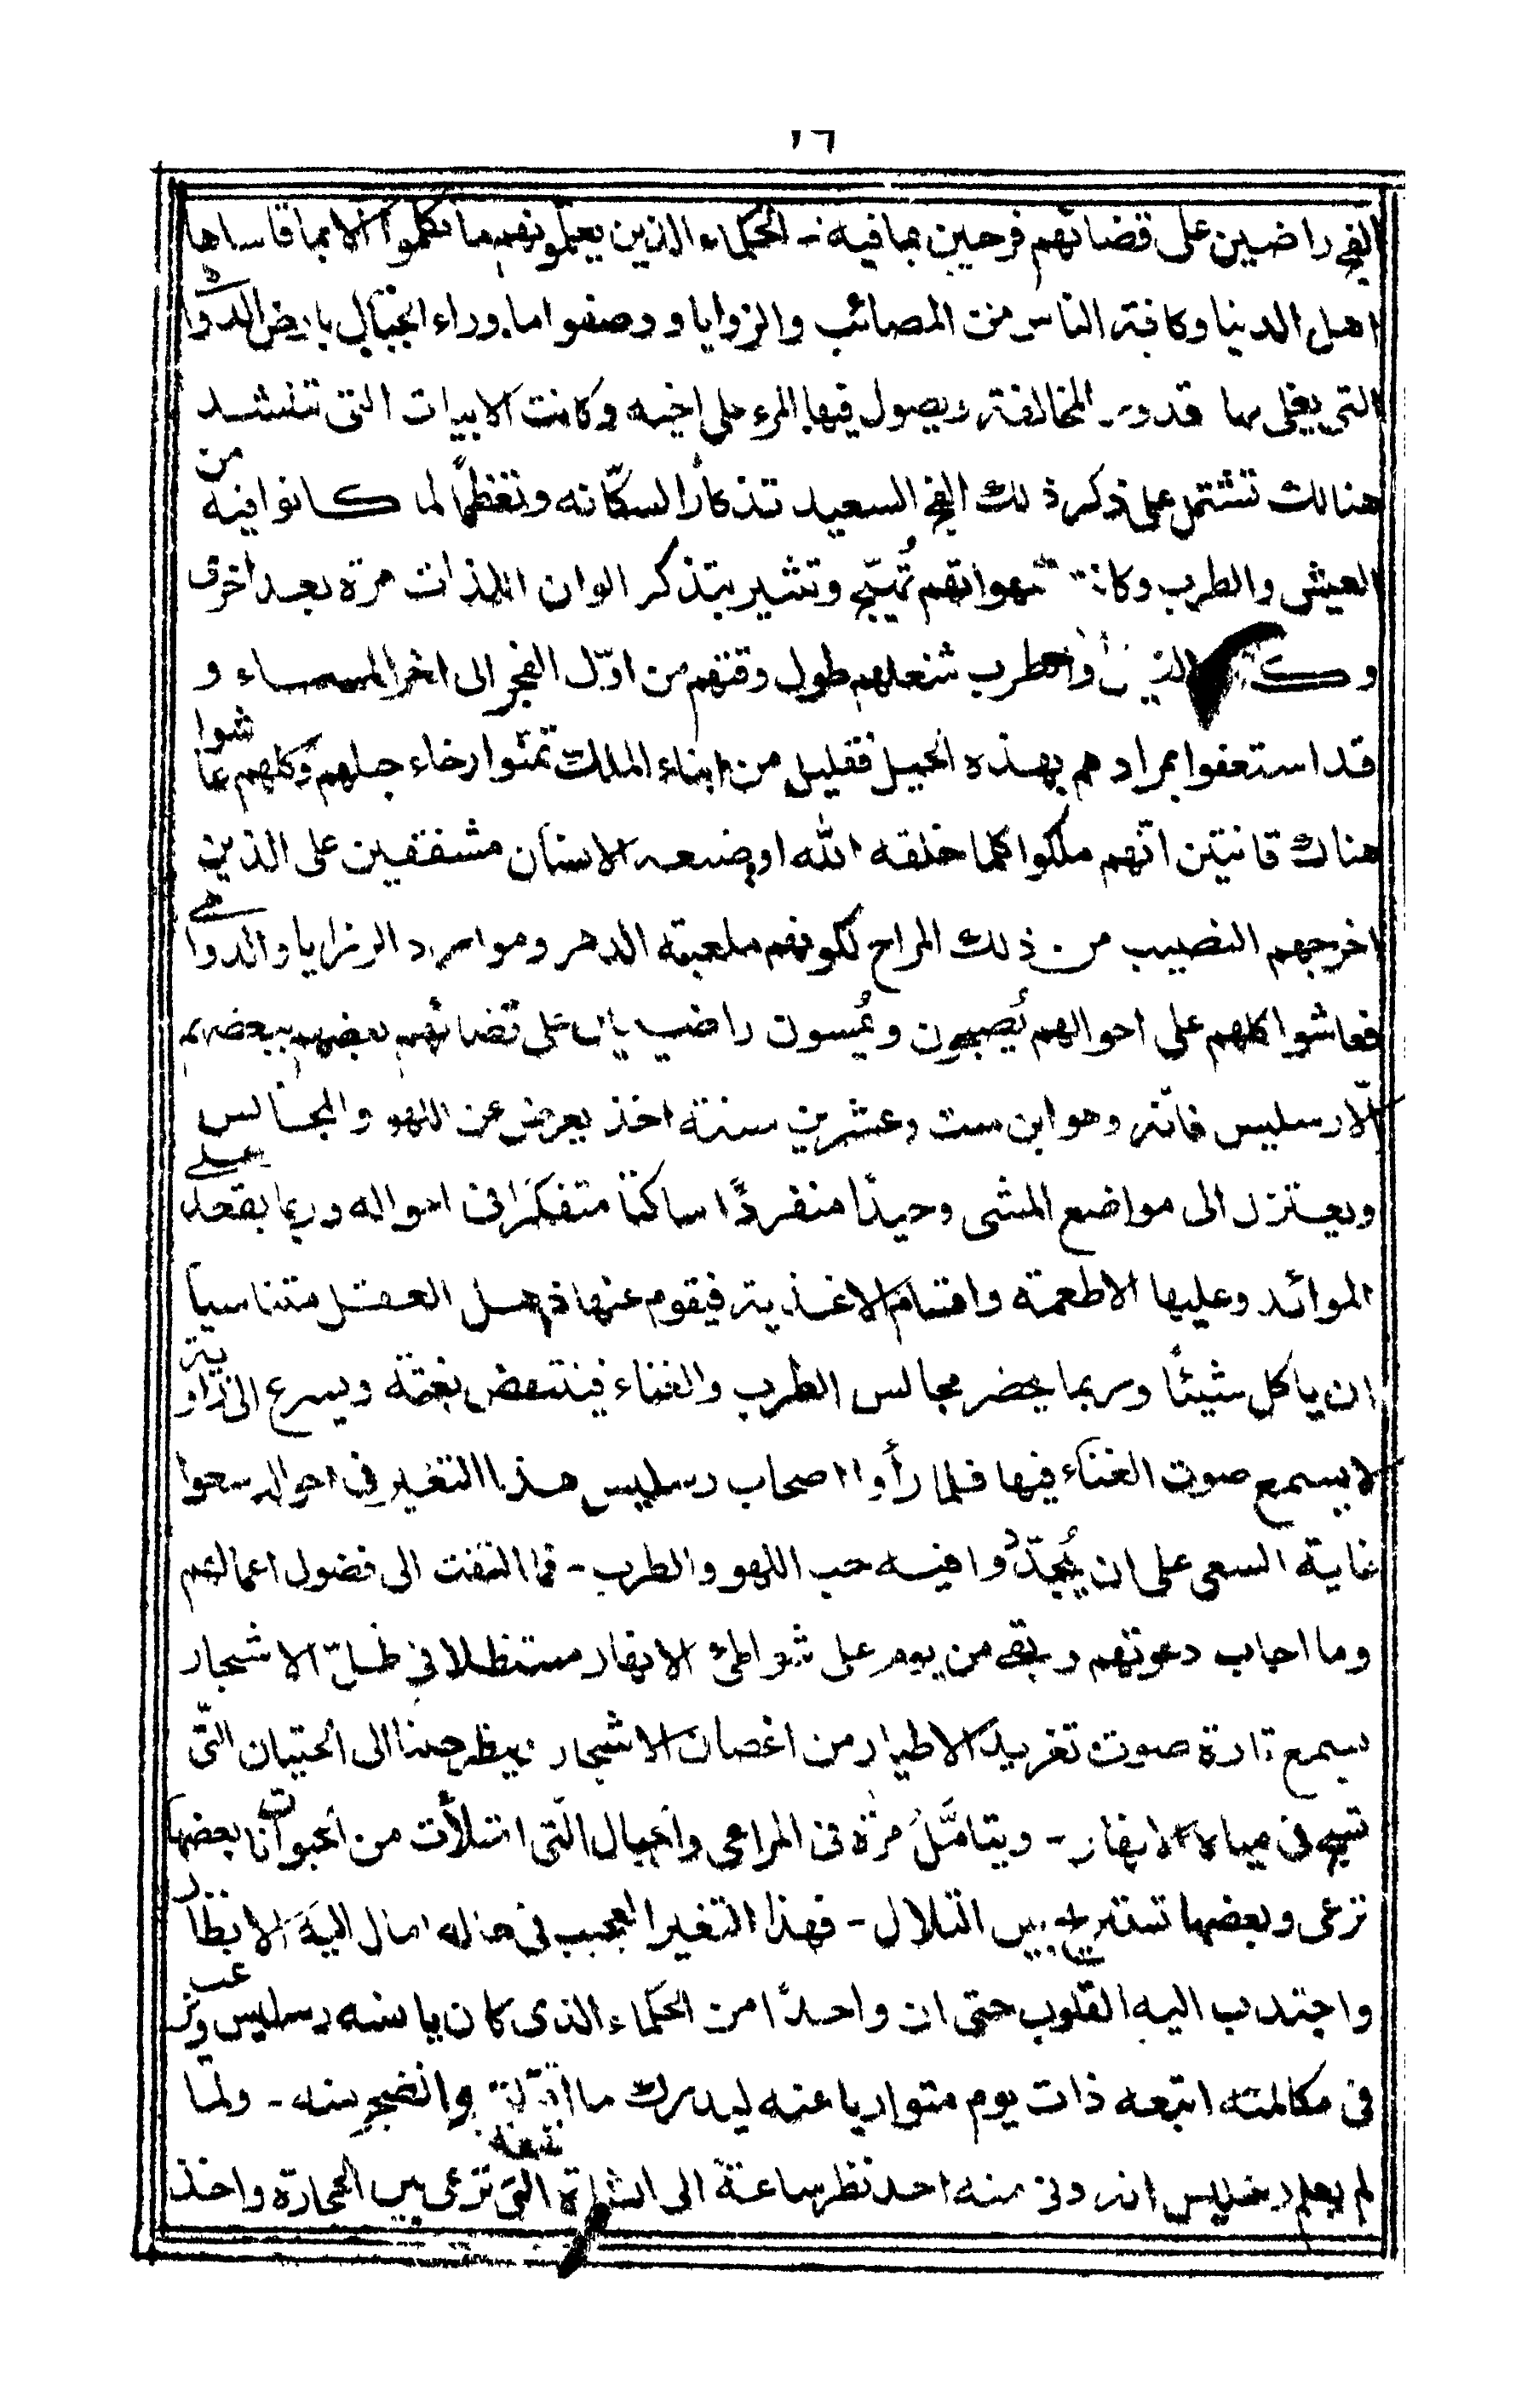 ١٦
الفج راضين على قضائهم فرحين بما فيه - الحكماء الذين يعلّمونهم ما تكلموا الا بما قاساها
اهل الدنيا وكافة الناس من المصائب والزوايا و وصفوا ما وراء الجبال بارض الدواهى
التى يغلى بها قدور المخالفة ويصول فيها المرء على اخيه وكانت الابيات التى تنشد
هنالك تشتمل على ذكر ذلك الفج السعيد تذكارًا لسكّانه وتعظيمًا لما كانوا فيه من
العيش والطرب وكانت شهواتهم تُهيّج وتثير بتذكر الوان اللذات مرة بعد اخرى
و الطرب شغلهم طول وقتهم من اوّل الفجر الى اخر المساء و
قد استعفوا بمرادهم بهذه الحيل فقليل من ابناء الملك تمنّوا رخاء جبلهم وكلهم عاشوا
هناك قانتين انّهم ملكوا كلما خلقه الله او وضعه الانسان مشفقين على الذين
اخرجهم النصيب من ذلك المراح لكونهم ملعبة الدهر وموارد الرزايا والدواهى
فعاشوا كلهم على احوالهم يُصبحون ويُمسون راضيين على قضائهم بعضهم ببعضهم
الّا رسليس فانّه وهو ابن ست وعشرين سنة اخذ يعرض عن اللهو والمجالس
ويعتزل الى مواضع المشى وحيدًا منفردًا ساكتًا متفكرًا فى احواله وربما يقعد على
الموائد وعليها الاطعمة واقسام الاغذية فيقوم عنها ذهل العقل متناسيا
ان ياكل شيئًا وربما يحضر مجالس الطرب والغناء فينتهض بغتة ويسرع الى زاوية
لا يسمع صوت الغناء فيها فلما رأوا اصحاب رسليس هذا التغير فى احواله سعوا
غاية السعى على ان يُجدّدوا فيه حب اللهو والطرب - فما التفت الى فضول اعمالهم
وما اجاب دعوتهم وبقى من يوم على شواطئ الانهار مستظلا فى ظلّ الاشجار
يسمع تارة صوت تغريد الاطيار من اغصان الاشجار وينظر حينا الى الحيتان الّتى
تسبح فى مياه الانهار - ويتامّلُ مرّة فى المراعى والجبال الّتى امتلأت من الحيوانات بعضها
ترعى وبعضها تستريح بين التلال - فهذا التغير العجيب فى حاله امال اليه الانظار
واجتذب اليه القلوب حتى ان واحدًا من الحكماء الذى كان يانسه رسليس ويرغب
فى مكالمته اتبعه ذات يوم متواريا عنه ليدرك ما وانضجر منه - ولمّا
لم يعلم رسليس انه دنى منه احد نظر ساعة الى الشاة التى ترعى بين الحجارة واخذ